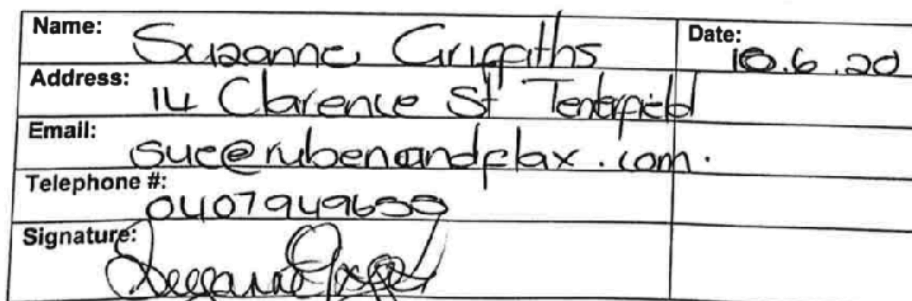 Name: Suzanne Griffiths Date: 10.6.20
Address: 14 Clarence St Tenterfield
Email: sue@rubenandflax.com.
Telephone #:
Signature: